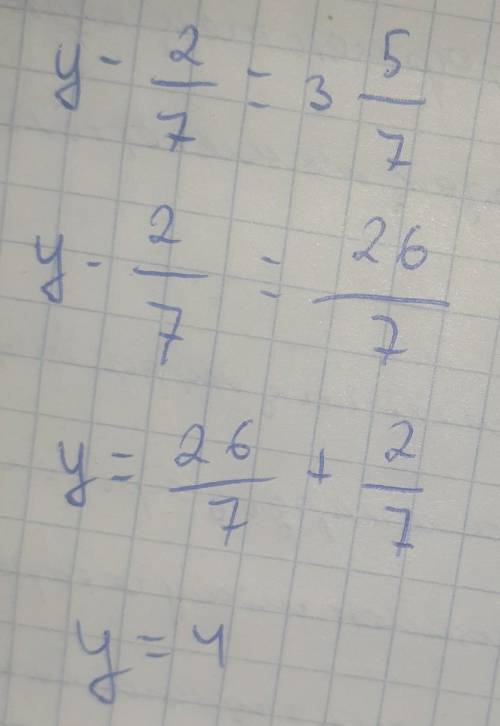 y - 2/7 = 3 5/7
y - 2/7 = 26/7
y = 26/7 + 2/7
y = 4